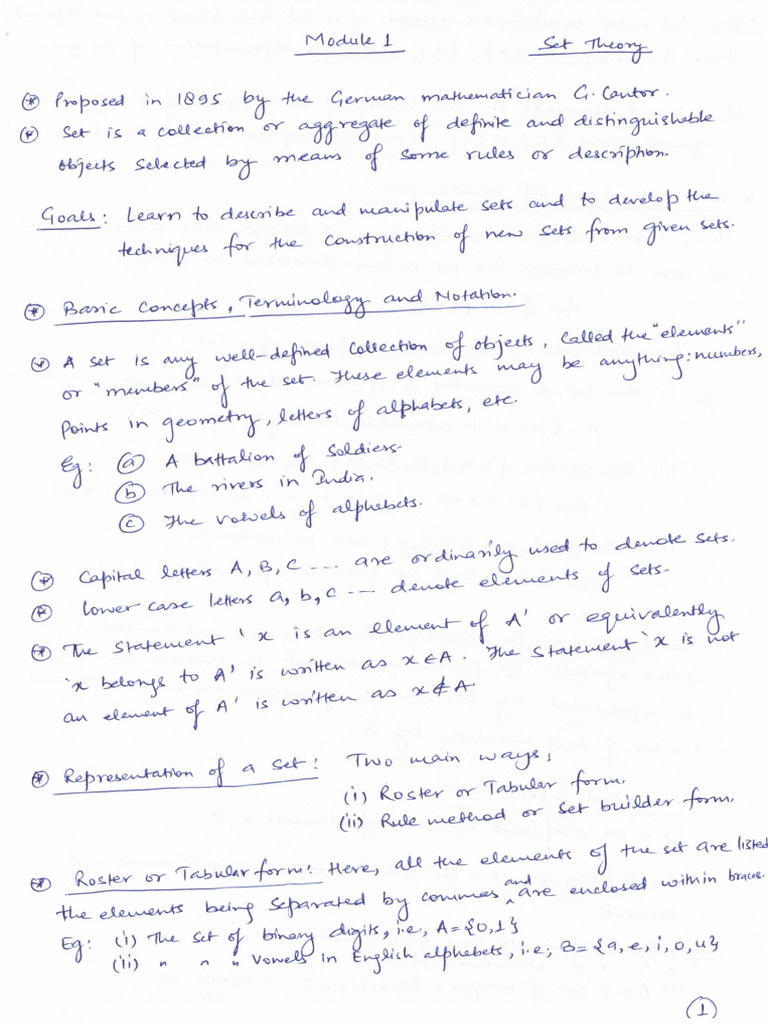 Module 1 Set Theory
⊛ Proposed in 1895 by the German mathematician G. Cantor.
⊛ Set is a collection or aggregate of definite and distinguishable
objects selected by means of some rules or description.
Goals: Learn to describe and manipulate sets and to develop the
techniques for the construction of new sets from given sets.
⊛ Basic Concepts, Terminology and Notation.
⊛ A set is any well-defined collection of objects, called the "elements"
or "members" of the set. These elements may be anything: numbers,
points in geometry, letters of alphabets, etc.
Eg: ⓐ A battalion of soldiers.
ⓑ The rivers in India.
ⓒ The vowels of alphabets.
⊛ Capital letters A, B, C .... are ordinarily used to denote sets.
⊛ Lower case letters a, b, c .... denote elements of sets.
⊛ The statement 'x is an element of A' or equivalently
'x belongs to A' is written as x∈A. The statement 'x is not
an element of A' is written as x∉A.
⊛ Representation of a set: Two main ways,
(i) Roster or Tabular form.
(ii) Rule method or set builder form.
⊛ Roster or Tabular form: Here, all the elements of the set are listed
the elements being separated by commas and are enclosed within braces.
Eg: (i) The set of binary digits, i.e., A={0,1}
(ii) " " " vowels in English alphabets, i.e., B={a,e,i,o,u}
①